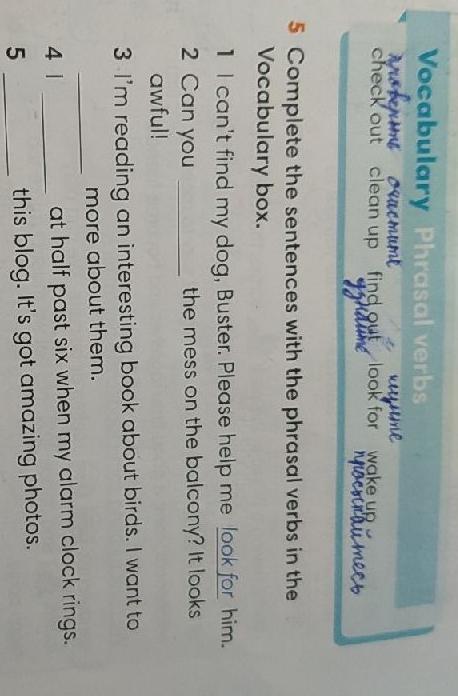 Vocabulary Phrasal verbs
проверьте очистите узнайте ищите проснитайтесь
check out clean up find out look for wake up
5 Complete the sentences with the phrasal verbs in the
Vocabulary box.
1 I can't find my dog, Buster. Please help me look for him.
2 Can you ________ the mess on the balcony? It looks
awful!
3 I'm reading an interesting book about birds. I want to
________ more about them.
4 I ________ at half past six when my alarm clock rings.
5 ________ this blog. It's got amazing photos.